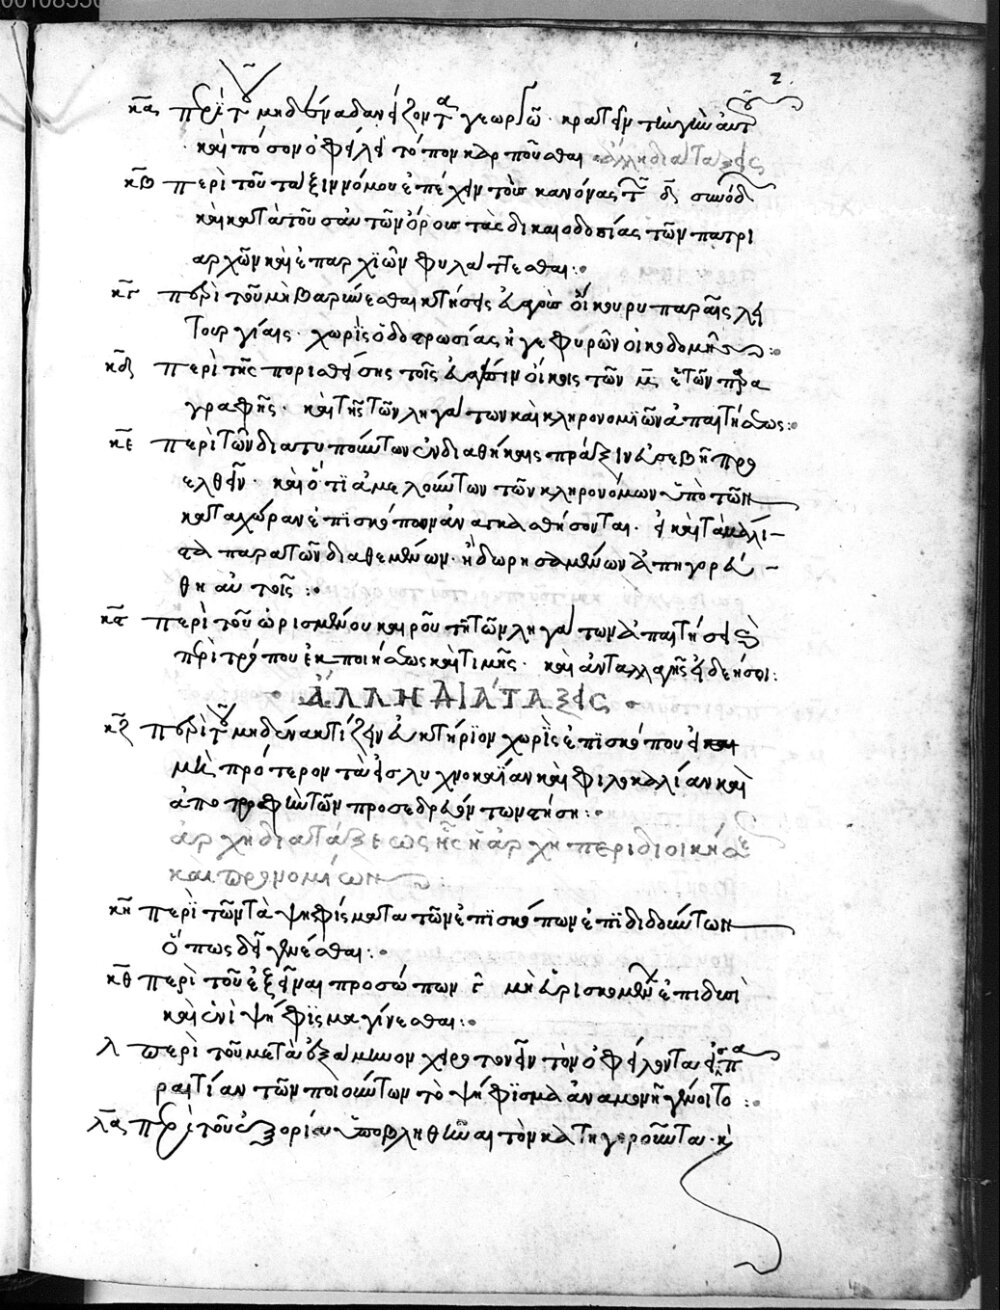 2
κα περὶ τοῦ μηδένα δανείζοντα γεωργῷ κρατεῖν τὴν γῆν αὐτοῦ
καὶ πόσον ὀφείλει τόπον καρποῦσθαι ἄλλη διάταξις
κβ περὶ τοῦ τάξιν νόμου ἐπέχειν τοὺς κανόνας τῶν δ συνόδων
καὶ κατὰ τοὺς αὐτῶν ὅρους τὰς δικαιοδοσίας τῶν πατρι
αρχῶν καὶ ἐπαρχιῶν φυλάττεσθαι:
κγ περὶ τοῦ μὴ βαρύνεσθαι κτήσεις εὐαγοῦς οἴκου ῥυπαραῖς λει
τουργίαις· χωρὶς ὁδοστρωσίας ἢ γεφυρῶν οἰκοδομῆς:
κδ περὶ τῆς πορισθείσης τοῖς εὐαγέσιν οἴκοις τῶν μ ἐτῶν παρα
γραφῆς· καὶ τῆς τῶν ληγάτων καὶ κληρονομιῶν ἀπαιτήσεως:
κε περὶ τῶν διατυπούντων ἐν διαθήκαις πρᾶξιν εὐσεβῆ προ
ελθεῖν· καὶ ὅτι ἀμελούντων τῶν κληρονόμων ὑπὸ τῶν
κατὰ χώραν ἐπισκόπων ἀναγκασθήσονται· εἰ καὶ τὰ μάλι-
στα παρὰ τῶν διαθεμένων ἢ δωρησαμένων ἀπηγορεύ-
θη αὐτοῖς:
κς περὶ τοῦ ὡρισμένου καιροῦ τῇ τῶν ληγάτων ἀπαιτήσει
περὶ τρόπου ἐκποιήσεως καὶ τιμῆς· καὶ ἀνταλλαγῆς εἰ δεήσοι:
ἌΛΛΗ ΔΙΆΤΑΞΙΣ
κζ περὶ τοῦ μηδένα κτίζειν εὐκτήριον χωρὶς ἐπισκόπου εἰ καὶ
μὴ πρότερον τὰ εἰς λυχνοκαΐαν καὶ φιλοκαλίαν καὶ
ἀποτροφὴν τῶν προσεδρευόντων
ἀρχὴ διατάξεως ἧς ἡ ἀρχὴ περὶ διοικήσεως
καὶ προνομίων
κη περὶ τῶν τὰ ψηφίσματα τῶν ἐπισκόπων ἐπιδιδόντων
ὅπως δεῖ γίνεσθαι:
κθ περὶ τοῦ ἐξεῖναι προσώπων γ μὴ εὑρισκομένων ἐπὶ δυσὶ
καὶ ἑνὶ ψήφισμα γίνεσθαι:
λ περὶ τοῦ μετὰ ἑξάμηνον χειροτονεῖν τὸν ὀφείλοντα εἰ παρ
ραιτίαν τῶν ποιούντων τὸ ψήφισμα ἀναμονὴ γένοιτο:
λα περὶ τοῦ ἐξορίαν ὑποβληθῆναι τὸν κατηγοροῦντα· καὶ